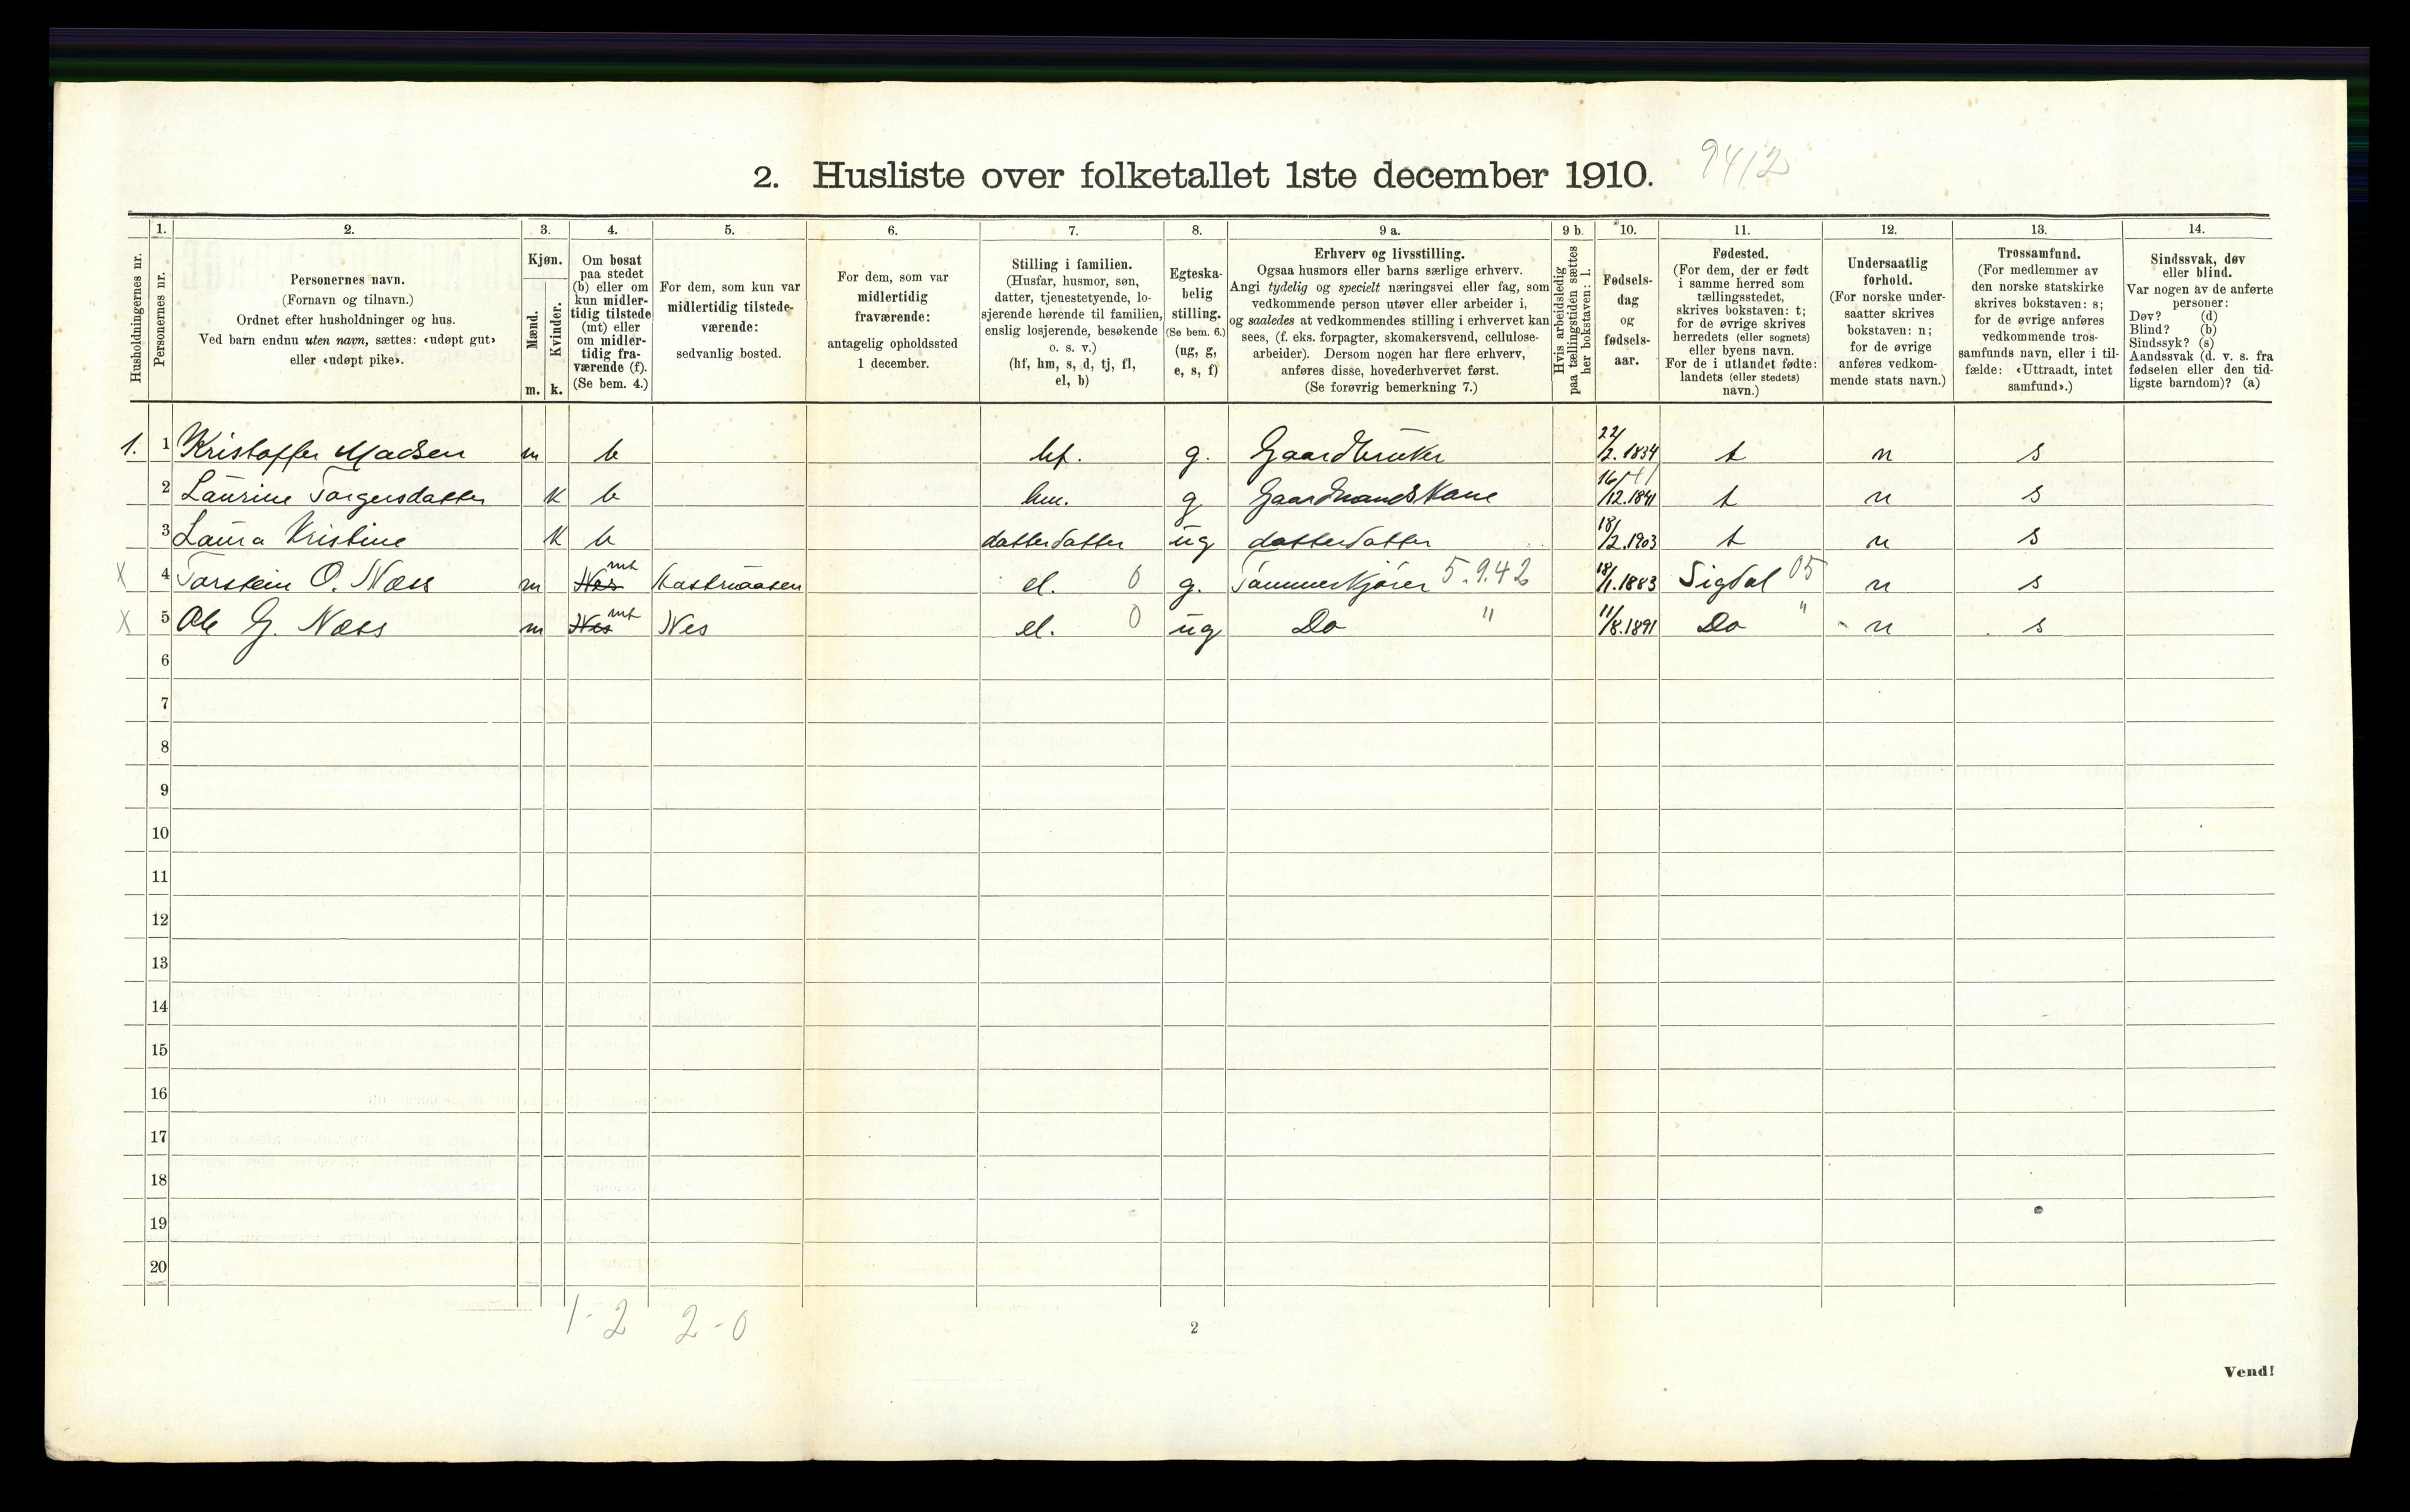 2. Husliste over folketallet 1ste december 1910. 9412
Husholdningernes nr.
1.
Personernes nr.
2.
Personernes navn.
(Fornavn og tilnavn.)
Ordnet efter husholdninger og hus.
Ved barn endnu uten navn, sættes: «udøpt gut»
eller «udøpt pike».
3.
Kjøn.
Mænd.
m.
Kvinder.
k.
4.
Om bosat
paa stedet
(b) eller om
kun midler-
tidig tilstede
(mt) eller
om midler-
tidig fra-
værende (f).
(Se bem. 4.)
5.
For dem, som kun var
midlertidig tilstede-
værende:
sedvanlig bosted.
6.
For dem, som var
midlertidig
fraværende:
antagelig opholdssted
1 december.
7.
Stilling i familien.
(Husfar, husmor, søn,
datter, tjenestetyende, lo-
sjerende hørende til familien,
enslig losjerende, besøkende
o. s. v.)
(hf, hm, s, d, tj, fl,
el, b)
8.
Egteska-
belig
stilling.
(Se bem. 6.)
(ug, g,
e, s, f)
9 a.
Erhverv og livsstilling.
Ogsaa husmors eller barns særlige erhverv.
Angi tydelig og specielt næringsvei eller fag, som
vedkommende person utøver eller arbeider i,
og saaledes at vedkommendes stilling i erhvervet kan
sees, (f. eks. forpagter, skomakersvend, cellulose-
arbeider). Dersom nogen har flere erhverv,
anføres disse, hovederhvervet først.
(Se forøvrig bemerkning 7.)
9 b.
Hvis arbeidsledig
paa tællingstiden sættes
her bokstaven: l.
10.
Fødsels-
dag
og
fødsels-
aar.
11.
Fødested.
(For dem, der er født
i samme herred som
tællingsstedet,
skrives bokstaven: t;
for de øvrige skrives
herredets (eller sognets)
eller byens navn.
For de i utlandet fødte:
landets (eller stedets)
navn.)
12.
Undersaatlig
forhold.
(For norske under-
saatter skrives
bokstaven: n;
for de øvrige
anføres vedkom-
mende stats navn.)
13.
Trossamfund.
(For medlemmer av
den norske statskirke
skrives bokstaven: s;
for de øvrige anføres
vedkommende tros-
samfunds navn, eller i til-
fælde: «Uttraadt, intet
samfund».)
14.
Sindssvak, døv
eller blind.
Var nogen av de anførte
personer:
Døv? (d)
Blind? (b)
Sindssyk? (s)
Aandssvak (d. v. s. fra
fødselen eller den tid-
ligste barndom)? (a)
1. 1 Kristoffer Madsen m b hf. g. Gaardbruker 22/2.1834 t n s
2 Laurine Torgersdatter k b hm. g Gaardmandskone 16/12.1841 t n s
3 Laura Kristine k b datterdatter ug datterdatter 18/2.1903 t n s
X 4 Torstein O. Næss m Nes mt el. 0 g. Tømmerkjører 5.9.42 18/1.1883 Sigdal 05 n s
X 5 Ole G. Næss m Nes mt Nes el. 0 ug Do " 11/8.1891 Do " n s
6
7
8
9
10
11
12
13
14
15
16
17
18
19
20
1-2 2-0
2
Vend!